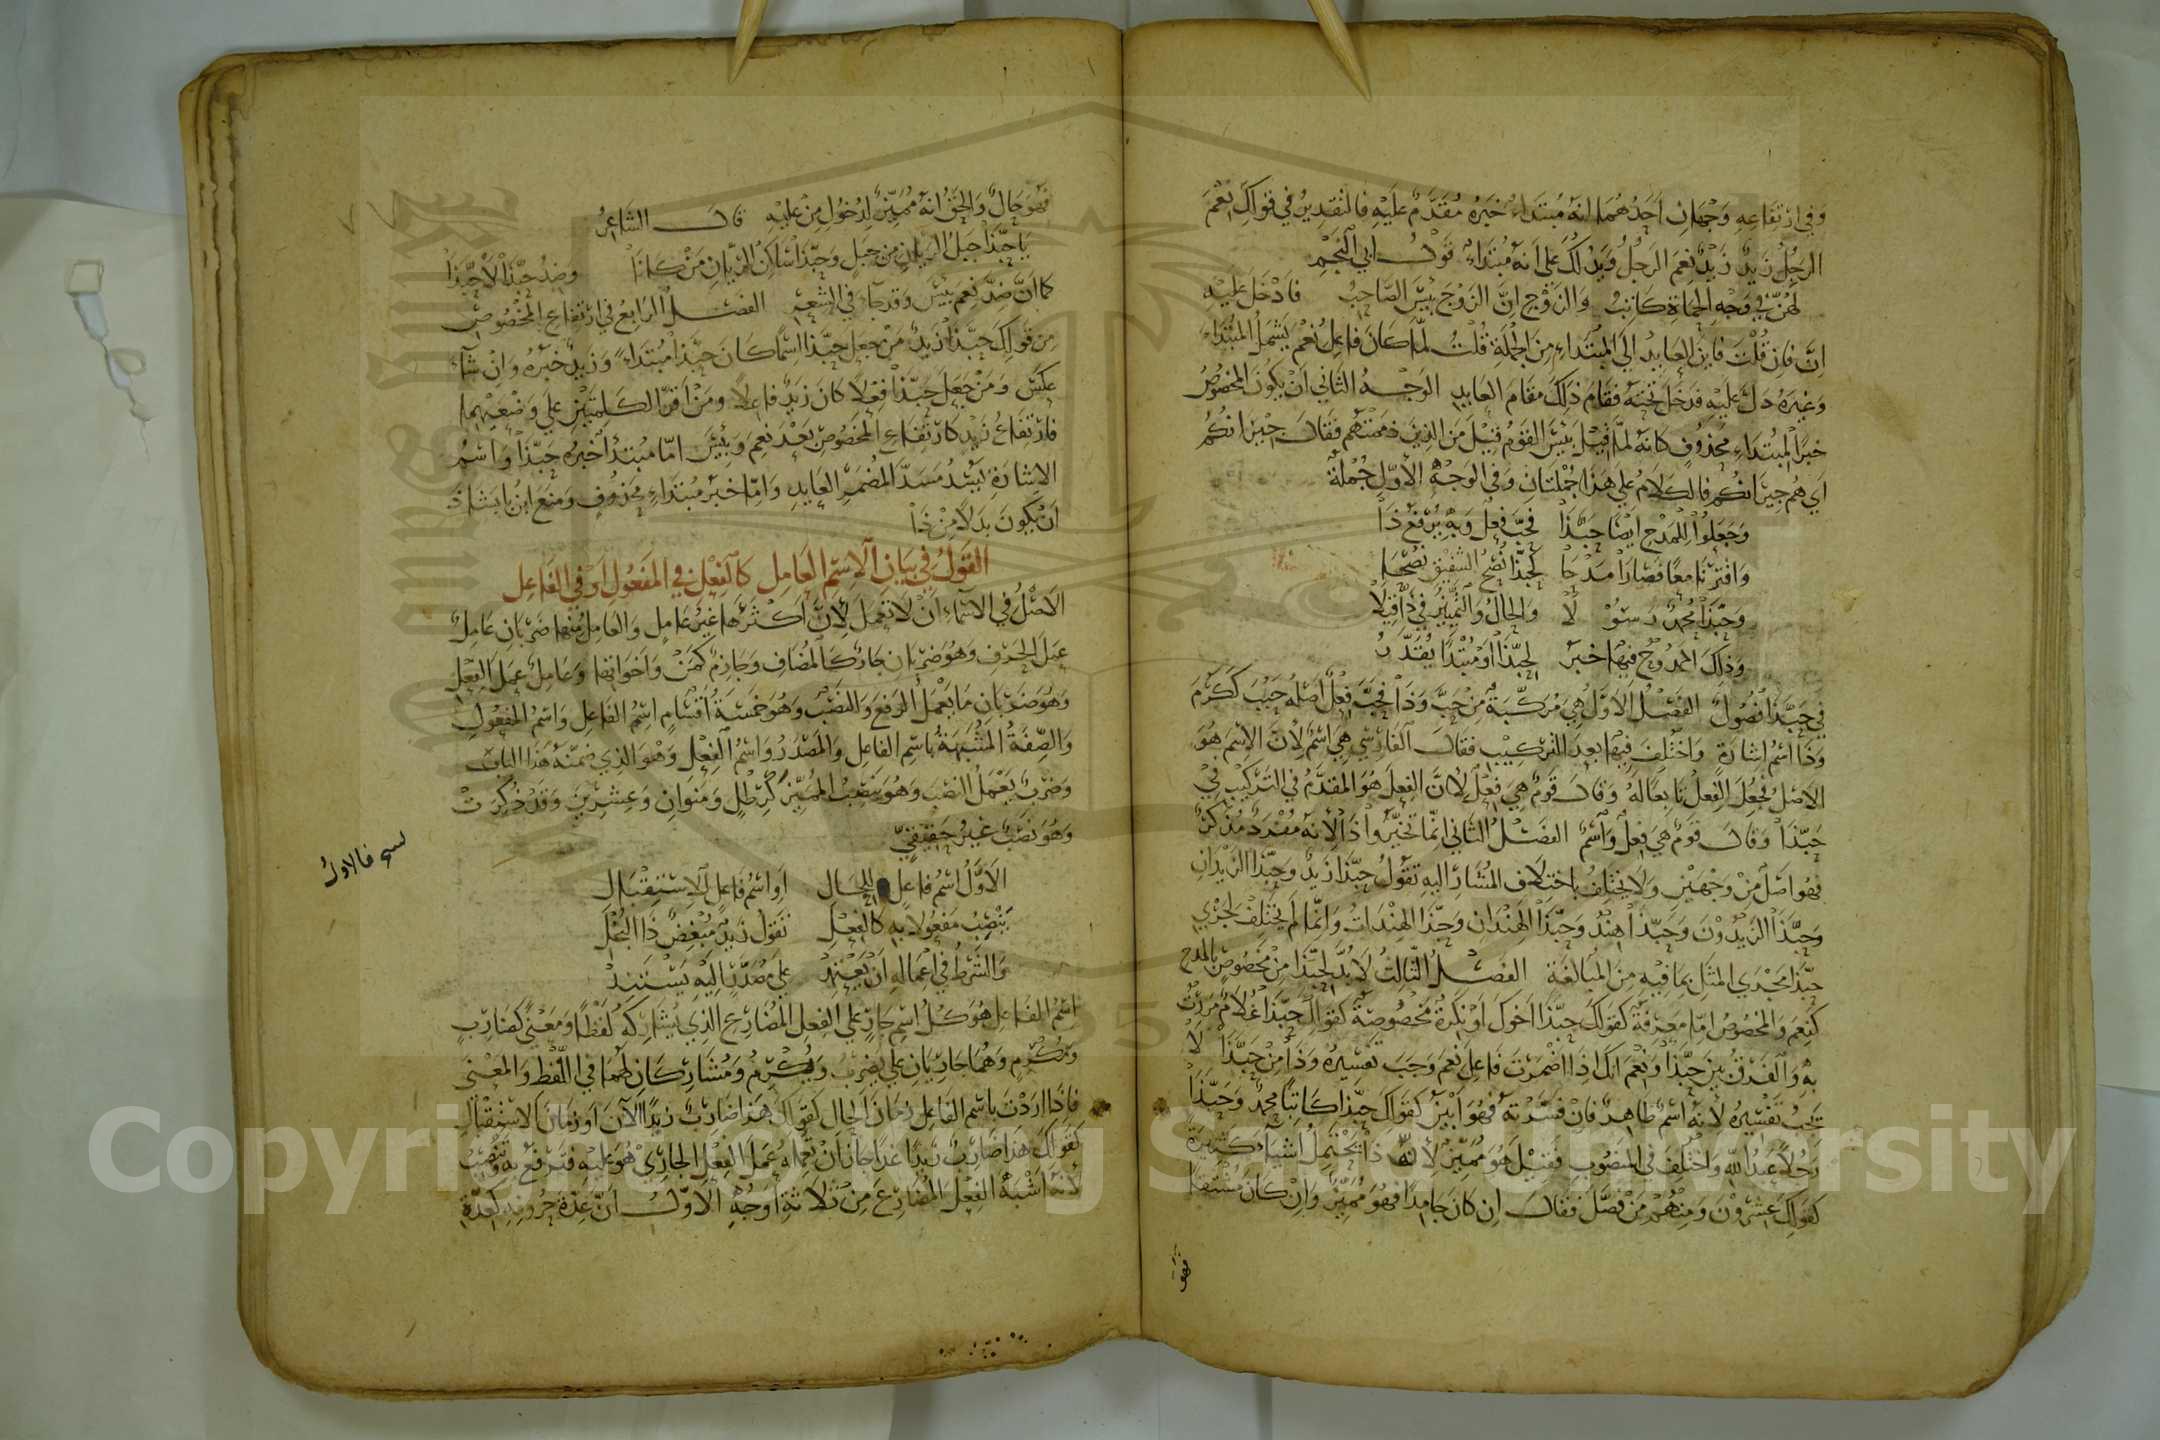 وفي ارتفاعه وجهان احدهما انه مبتداء خبره مقدم عليه فالتقدير في قولك نعم
الرجل زيد زيد نعم الرجل ويدلك على انه مبتداء قول ابي النجم
لهن في وجه الحماة كاتب والزوج ان الزوج بئس الصاحب فادخل عليه
ان فان قلت فاين العايد الى المبتداء من الجملة قلت لما كان فاعل نعم يشمل المبتداء
وغيره دل عليه فدخل تحته فقام ذلك مقام العايد الوجه الثاني ان يكون المخصوص
خبر المبتداء محذوف كانه لما قيل بئس القوم قيل من الذين ذممتهم فقال جيرانكم
اي هم جيرانكم فالكلام على هذا جملتان وفي الوجه الاول جملة
وجعلوا للمدح ايضا حبذا فحب فعل وبه يرفع ذا
واقترنا معا فصارا مدحا كحبذا نصح الشفيق نصحا
وحبذا محمد رسولا والحال والتمييز في ذا قيلا
وذلك الممدوح فيها خبر لحبذا او مبتدا يقدر
في حبذا فصول الفصل الاول هي مركبة من حب وذا فحب فعل اصله حبب ككرم
وذا اسم اشارة واختلف فيها بعد التركيب فقال الفارسي هي اسم لان الاسم هو
الاصل فجعل الفعل تابعا له وقال قوم هي فعل لان الفعل هو المقدم في التركيب في
حبذا وقال قوم هي فعل واسم الفصل الثاني انما تخيروا ذا لانه مفرد مذكر
فهو اصل من وجهين ولا يختلف باختلاف المشار اليه تقول حبذا زيد وحبذا الزيدان
وحبذا الزيدون وحبذا هند وحبذا الهندان وحبذا الهندات وانما لم يختلف لجري
حبذا مجرى المثل بما فيه من المبالغة الفصل الثالث لا بد لحبذا من مخصوص بالمدح
كنعم والمخصوص اما معرفة كقولك حبذا اخوك او نكرة مخصوصة كقولك حبذا غلام مررت
به والفرق بين حبذا ونعم انك اذا اضمرت فاعل نعم وجب تفسيره وذا من حبذا لا
يجب تفسيره لانه اسم ظاهر فان فسرته فهو ابين كقولك حبذا كاتبا محمد وحبذا
رجلا عبد الله واختلف في المنصوب فقيل هو مميز لانه ذا تحتمل اشياء كثيرة
كقولك عشرون ومنهم من فصل فقال ان كان جامدا فهو مميز وان كان مشتقا
فهو حال والحق انه مميز لدخول من عليه قال الشاعر
يا حبذا جبل الريان من جبل وحبذا ساكن الريان من كانا وضد حبذا لا حبذا
كما ان ضد نعم بئس وقد جاء في الشعر الفصل الرابع في ارتفاع المخصوص
من قولك حبذا زيد من جعل حبذا اسما كان حبذا مبتداء وزيد خبره وان شاء
عكس ومن جعل حبذا فعلا كان زيد فاعلا ومن اقر الكلمتين على وضعيهما
فارتفاع زيد كارتفاع المخصوص بعد نعم وبئس اما مبتدأ خبره حبذا واسم
الاشارة يسد مسد المضمر العايد واما خبر مبتداء محذوف ومنع ابن بابشاذ
ان يكون بدلا من ذا
القول في بيان الاسم العامل كالفعل في المفعول او في الفاعل
الاصل في الاسماء ان لا تعمل لان اكثرها غير عامل والعامل منها ضربان عامل
عمل الحرف وهو ضربان جار كالمضاف وجازم كمن واخواتها وعامل عمل الفعل
وهو ضربان ما يعمل الرفع والنصب وهو خمسة اقسام اسم الفاعل واسم المفعول
والصفة المشبهة باسم الفاعل والمصدر واسم الفعل وهو الذي ضمنه هذا الباب
وضرب يعمل النصب وهو ينصب المميز كرطل ومنوان وعشرين وقد ذكرت
وهو نصب غير حقيقي
الاول اسم فاعل للحال او اسم فاعل للاستقبال
ينصب مفعولا به كالفعل تقول زيد مبغض ذا البخل
والشرط في اعماله ان يعتمد على مصدر اليه يستند
اسم الفاعل هو كل اسم جار على الفعل المضارع الذي يشاركه لفظا ومعنى كضارب
ومكرم وهما جاريان على يضرب ويكرم ومشاركان لهما في اللفظ والمعنى
فاذا اردت باسم الفاعل زمان الحال كقولك هذا ضارب زيدا الآن او زمان الاستقبال
كقولك هذا ضارب زيدا غدا جاز ان تعمله عمل الفعل الجاري هو عليه فترفع به وتنصب
لانه اشبه الفعل المضارع من ثلاثة اوجه الاول ان عدة حروفه كعدة
فالاول
Copyright © King Saud University
King Saud University
1957